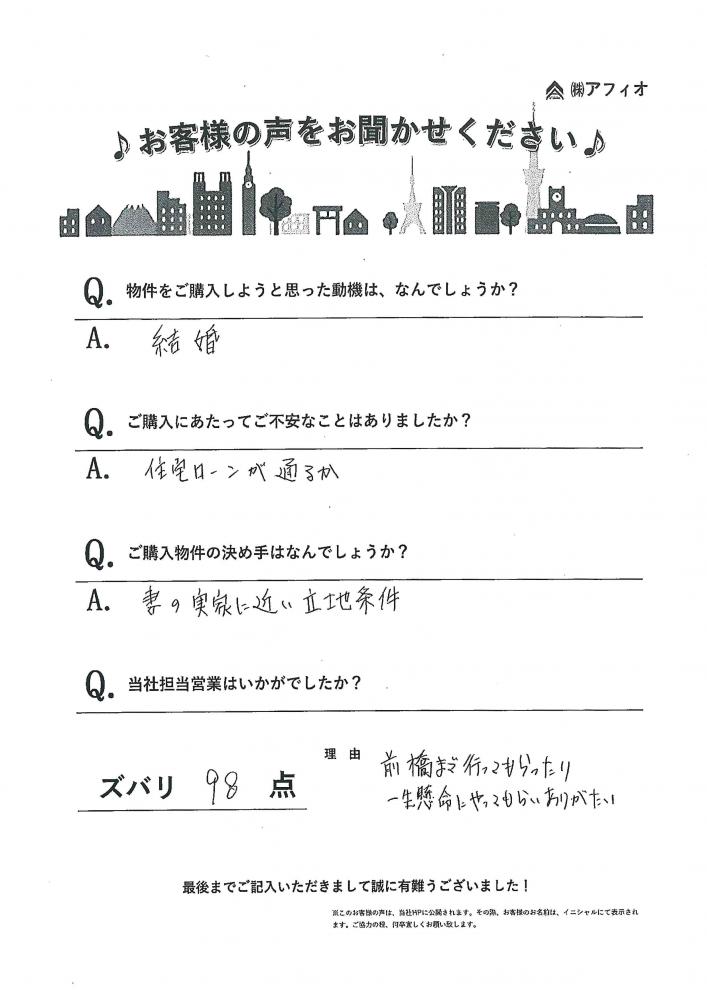 ㈱アフィオ
♪お客様の声をお聞かせください♪
Q. 物件をご購入しようと思った動機は、なんでしょうか？
A. 結婚
Q. ご購入にあたってご不安なことはありましたか？
A. 住宅ローンが通るか
Q. ご購入物件の決め手はなんでしょうか？
A. 妻の実家に近い立地条件
Q. 当社担当営業はいかがでしたか？
ズバリ 98 点
理由 前橋まで行ってもらったり
一生懸命にやってもらいありがたい
最後までご記入いただきまして誠に有難うございました！
※このお客様の声は、当社HPに公開されます。その際、お客様のお名前は、イニシャルにて表示され
ます。ご協力の程、何卒宜しくお願い致します。